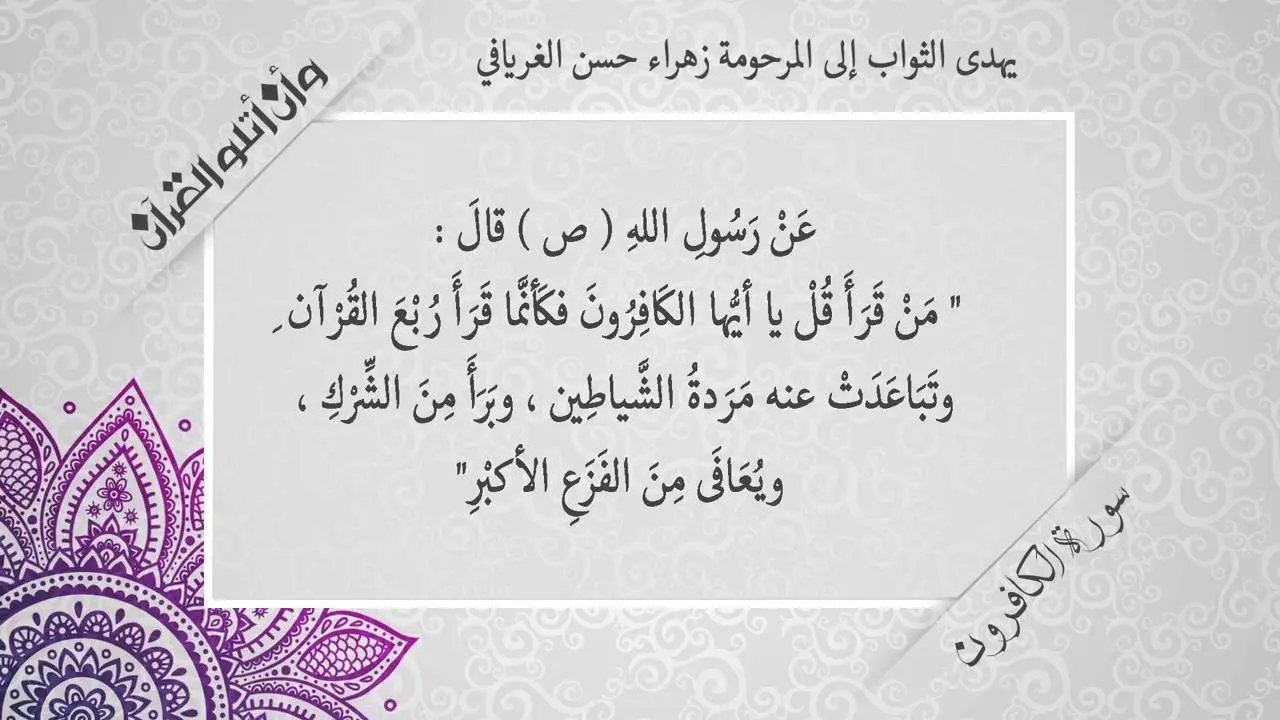 يهدى الثواب إلى المرحومة زهراء حسن الغريافي
وأن أتلو القرآن
عَنْ رَسُولِ اللهِ ( ص ) قالَ :
" مَنْ قَرَأَ قُلْ يا أيُّها الكَافِرُونَ فكَأنَّما قَرَأَ رُبْعَ القُرْآن ِ
وتَبَاعَدَتْ عنه مَرَدةُ الشَّياطِين ، وبَرَأَ مِنَ الشِّرْكِ ،
ويُعَافَى مِنَ الفَزَعِ الأكبْرِ"
سورة الكافرون